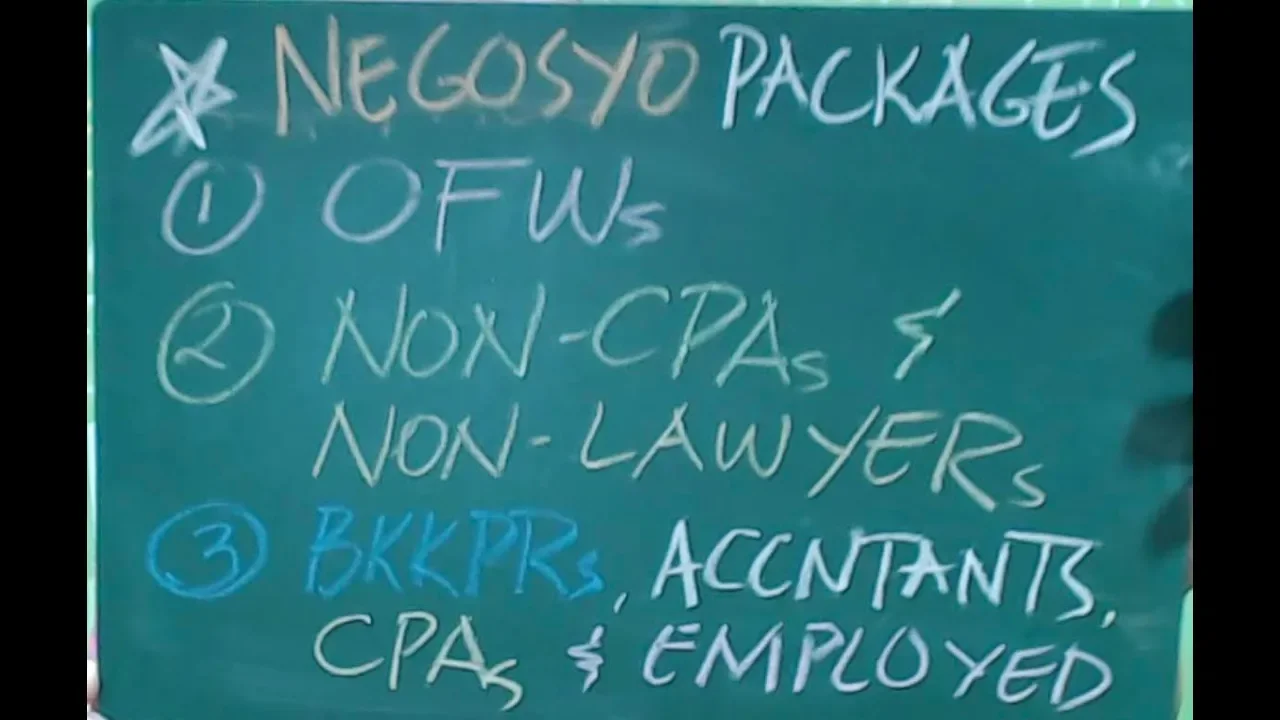 ☆ NEGOSYO PACKAGES
① OFWs
② NON-CPAs &
NON-LAWYERs
③ BKKPRs, ACCNTANTS,
CPAs & EMPLOYED